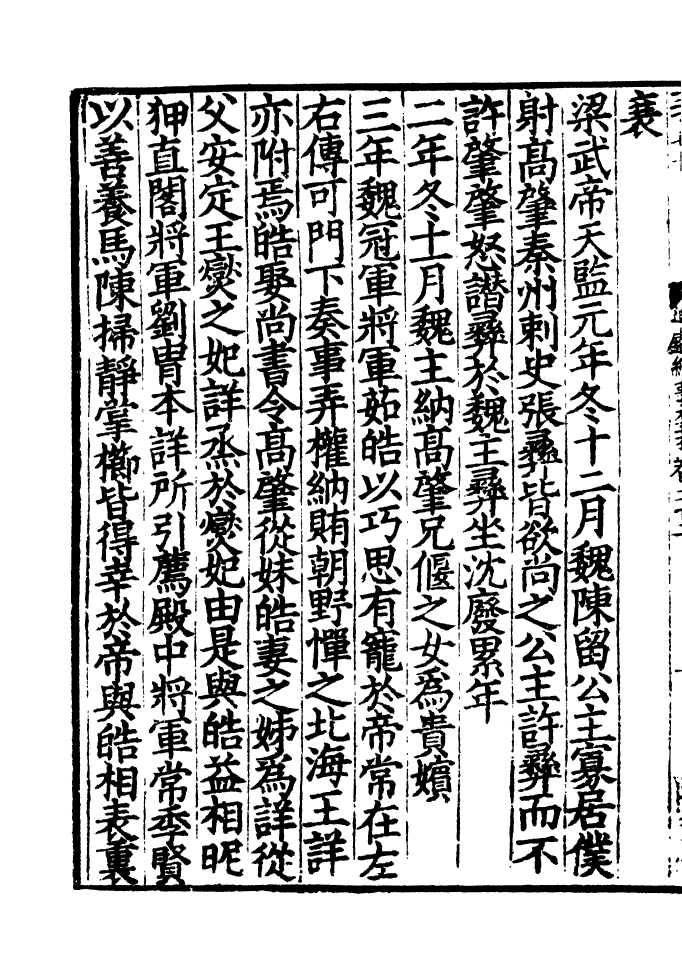 衰
梁武帝天監元年冬十二月魏陳留公主寡居僕
射髙肇秦州刺史張彞皆欲尚之公主許彞而不
許肇肇怒譖彞於魏主彞坐沈廢累年
二年冬十一月魏主納髙肇兄偃之女為貴嬪
三年魏冠軍將軍茹皓以巧思有寵於帝常在左
右傳可門下奏事弄權納賄朝野憚之北海王詳
亦附焉皓娶尚書令髙肇從妹皓妻之姊為詳從
父安定王燮之妃詳烝於燮妃由是與皓益相昵
狎直閣將軍劉胄本詳所引薦殿中將軍常季賢
以善養馬陳掃靜掌櫛皆得幸於帝與皓相表裏